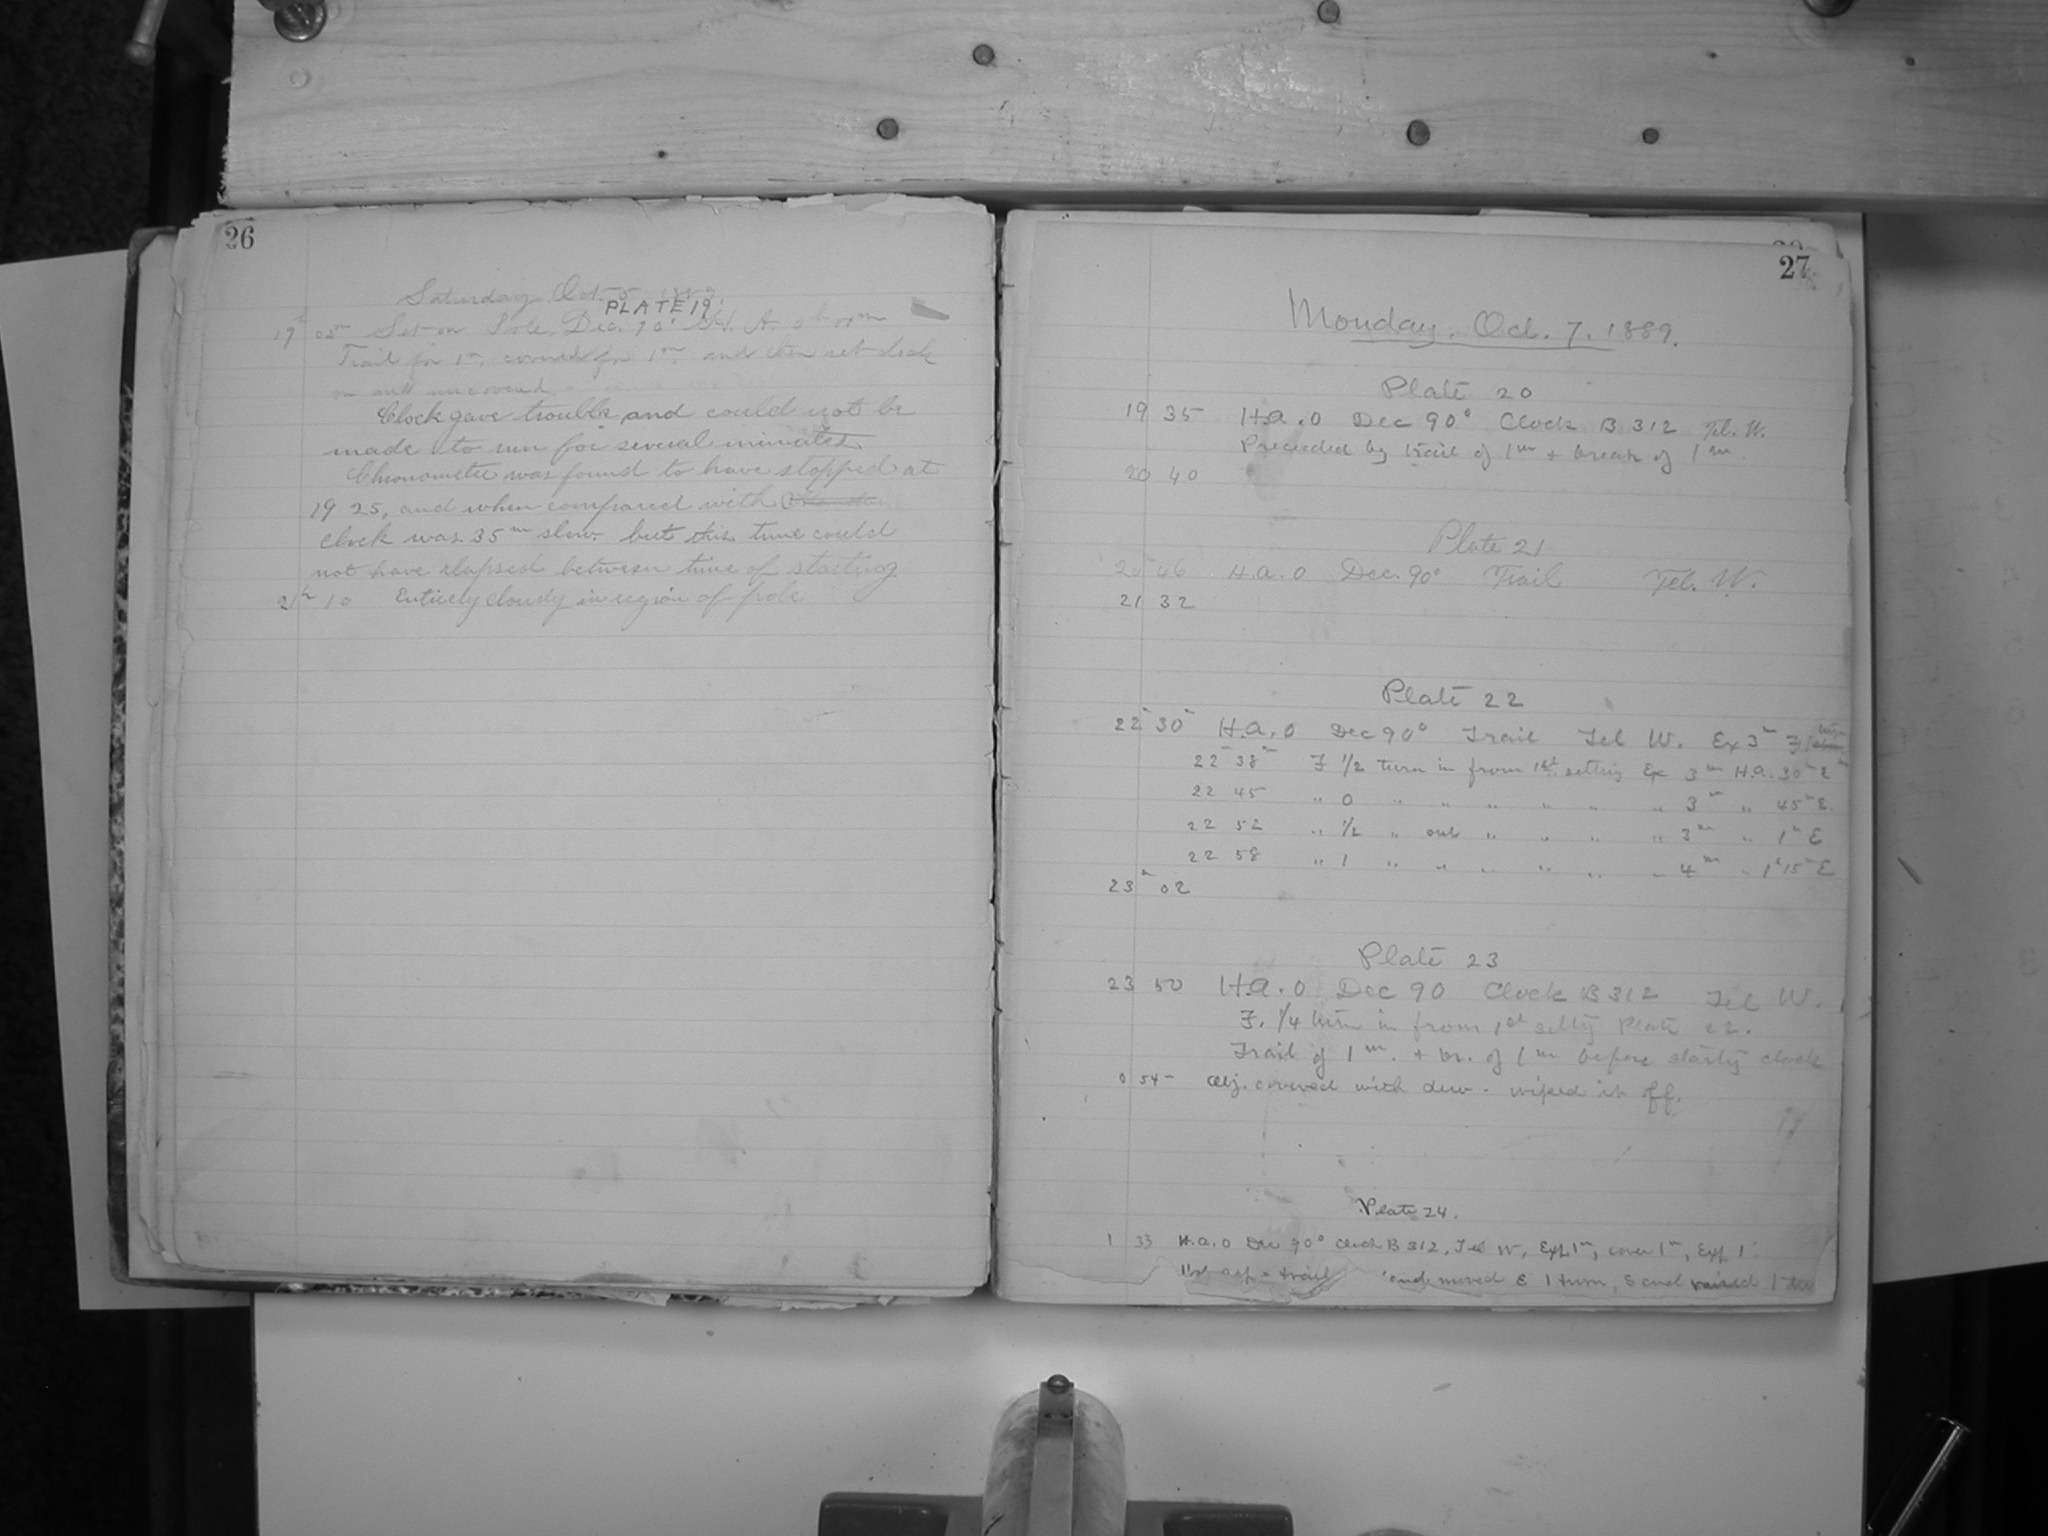 26
Saturday Oct. 5 1889.
PLATE 19.
19h 05m Set on Pole, Dec. 90° H. A. 0h 00m
Trail for 1m, covered for 1m, and then set clock
on and uncovered
Clock gave trouble and could not be
made to run for several minutes
Chronometer was found to have stopped at
19 25, and when compared with
clock was 35m slow. but this time could
not have elapsed between time of starting
2h 10 Entirely cloudy in region of pole
27
Monday, Oct. 7, 1889.
Plate 20
19 35 H.a. 0 Dec 90° Clock B 312 Tel. W.
Preceded by trail of 1m + break of 1m.
20 40
Plate 21
20 46 H.a. 0 Dec. 90° Trail Tel. W.
21 32
Plate 22
22 30 H.a. 0 Dec 90° Trail Tel W. Ex 3m F.
22 38 F 1/2 turn in from 1st setting Ex 3m H.a. 30m E
22 45 " 0 " " " " " " 3m " 45m E.
22 52 " 1/2 " out " " " " 3m " 1h E
22 58 " 1 " " " " " " 4m " 1h 15m E
23 02
Plate 23
23 50 H.a. 0 Dec 90 Clock B 312 Tel W.
F. 1/4 turn in from 1st settg Plate 22.
Trail of 1m. + br. of 1m before startg clock
0 54 Obj. covered with dew - wiped it off.
Plate 24.
1 33 H.a. 0 Dec 90° Clock B 312, Tel W, Exp 1m, cover 1m, Exp 1
trail and moved E 1 turn, S end raised 1